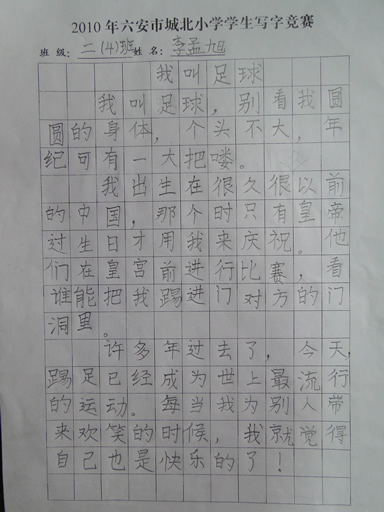 2010年六安市城北小学学生写字竞赛
班级：二（4）班姓名：李孟旭
我叫足球
我叫足球，别看我圆
圆的身体，个头不大，年
纪可有一大把喽。
我出生在很久很以前
的中国，那个时只有皇帝
过生日才用我来庆祝。他
们在皇宫前进行比赛，看
谁能把我踢进门对方的门
洞里。
许多年过去了，今天，
踢足已经成为世上最流行
的运动。每当我为别人带
来欢笑的时候，我就觉得
自己也是快乐的了！